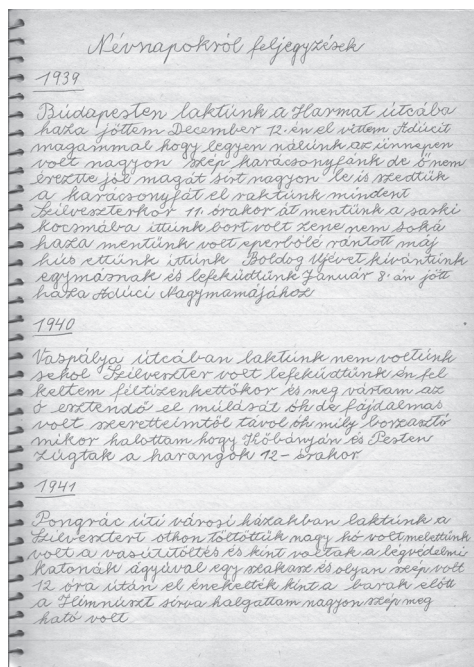 Névnapokról feljegyzések
1939
Búdapesten laktúnk a Harmat útcába
haza jöttem December 12.-én el vittem Adúcit
magammal hogy legyen nálúnk az ünnepen
volt nagyon szép karácsonyfánk de ő nem
érezte jól magát sírt nagyon le is szedtük
a karácsonyfát el raktúnk mindent
Szilveszterkor 11. órakor át mentünk a saski
kocsmába ittúnk bort volt zene nem soká
haza mentünk volt eperbőlé rántott máj
hús ettünk ittúnk Boldog Újévet kívántúnk
egymásnak és lefeküdtünk Január 8.-án jött
haza Adúci Nagymamájához
1940
Vaspálya útcában laktúnk nem voltúnk
sehol Szilveszter volt lefeküdtünk én fel
keltem féltizenkettőkor és meg vártam az
ó esztendő el múlását óh de fájdalmas
volt szeretteimtől távol óh mily borzasztó
mikor halottam hogy Kőbányán és Pesten
zúgtak a harangok 12 - órakor
1941
Pongrác úti városi házakban laktúnk a
Szilvesztert othon töltöttük nagy hó volt melettünk
volt a vasúti töltés és kint voltak a légvédelmi
katonák ágyúval egy szakasz és olyan szép volt
12 óra útán el énekelték kint a barak előtt
a Himnúszt sírva halgattam nagyon szép meg
ható volt